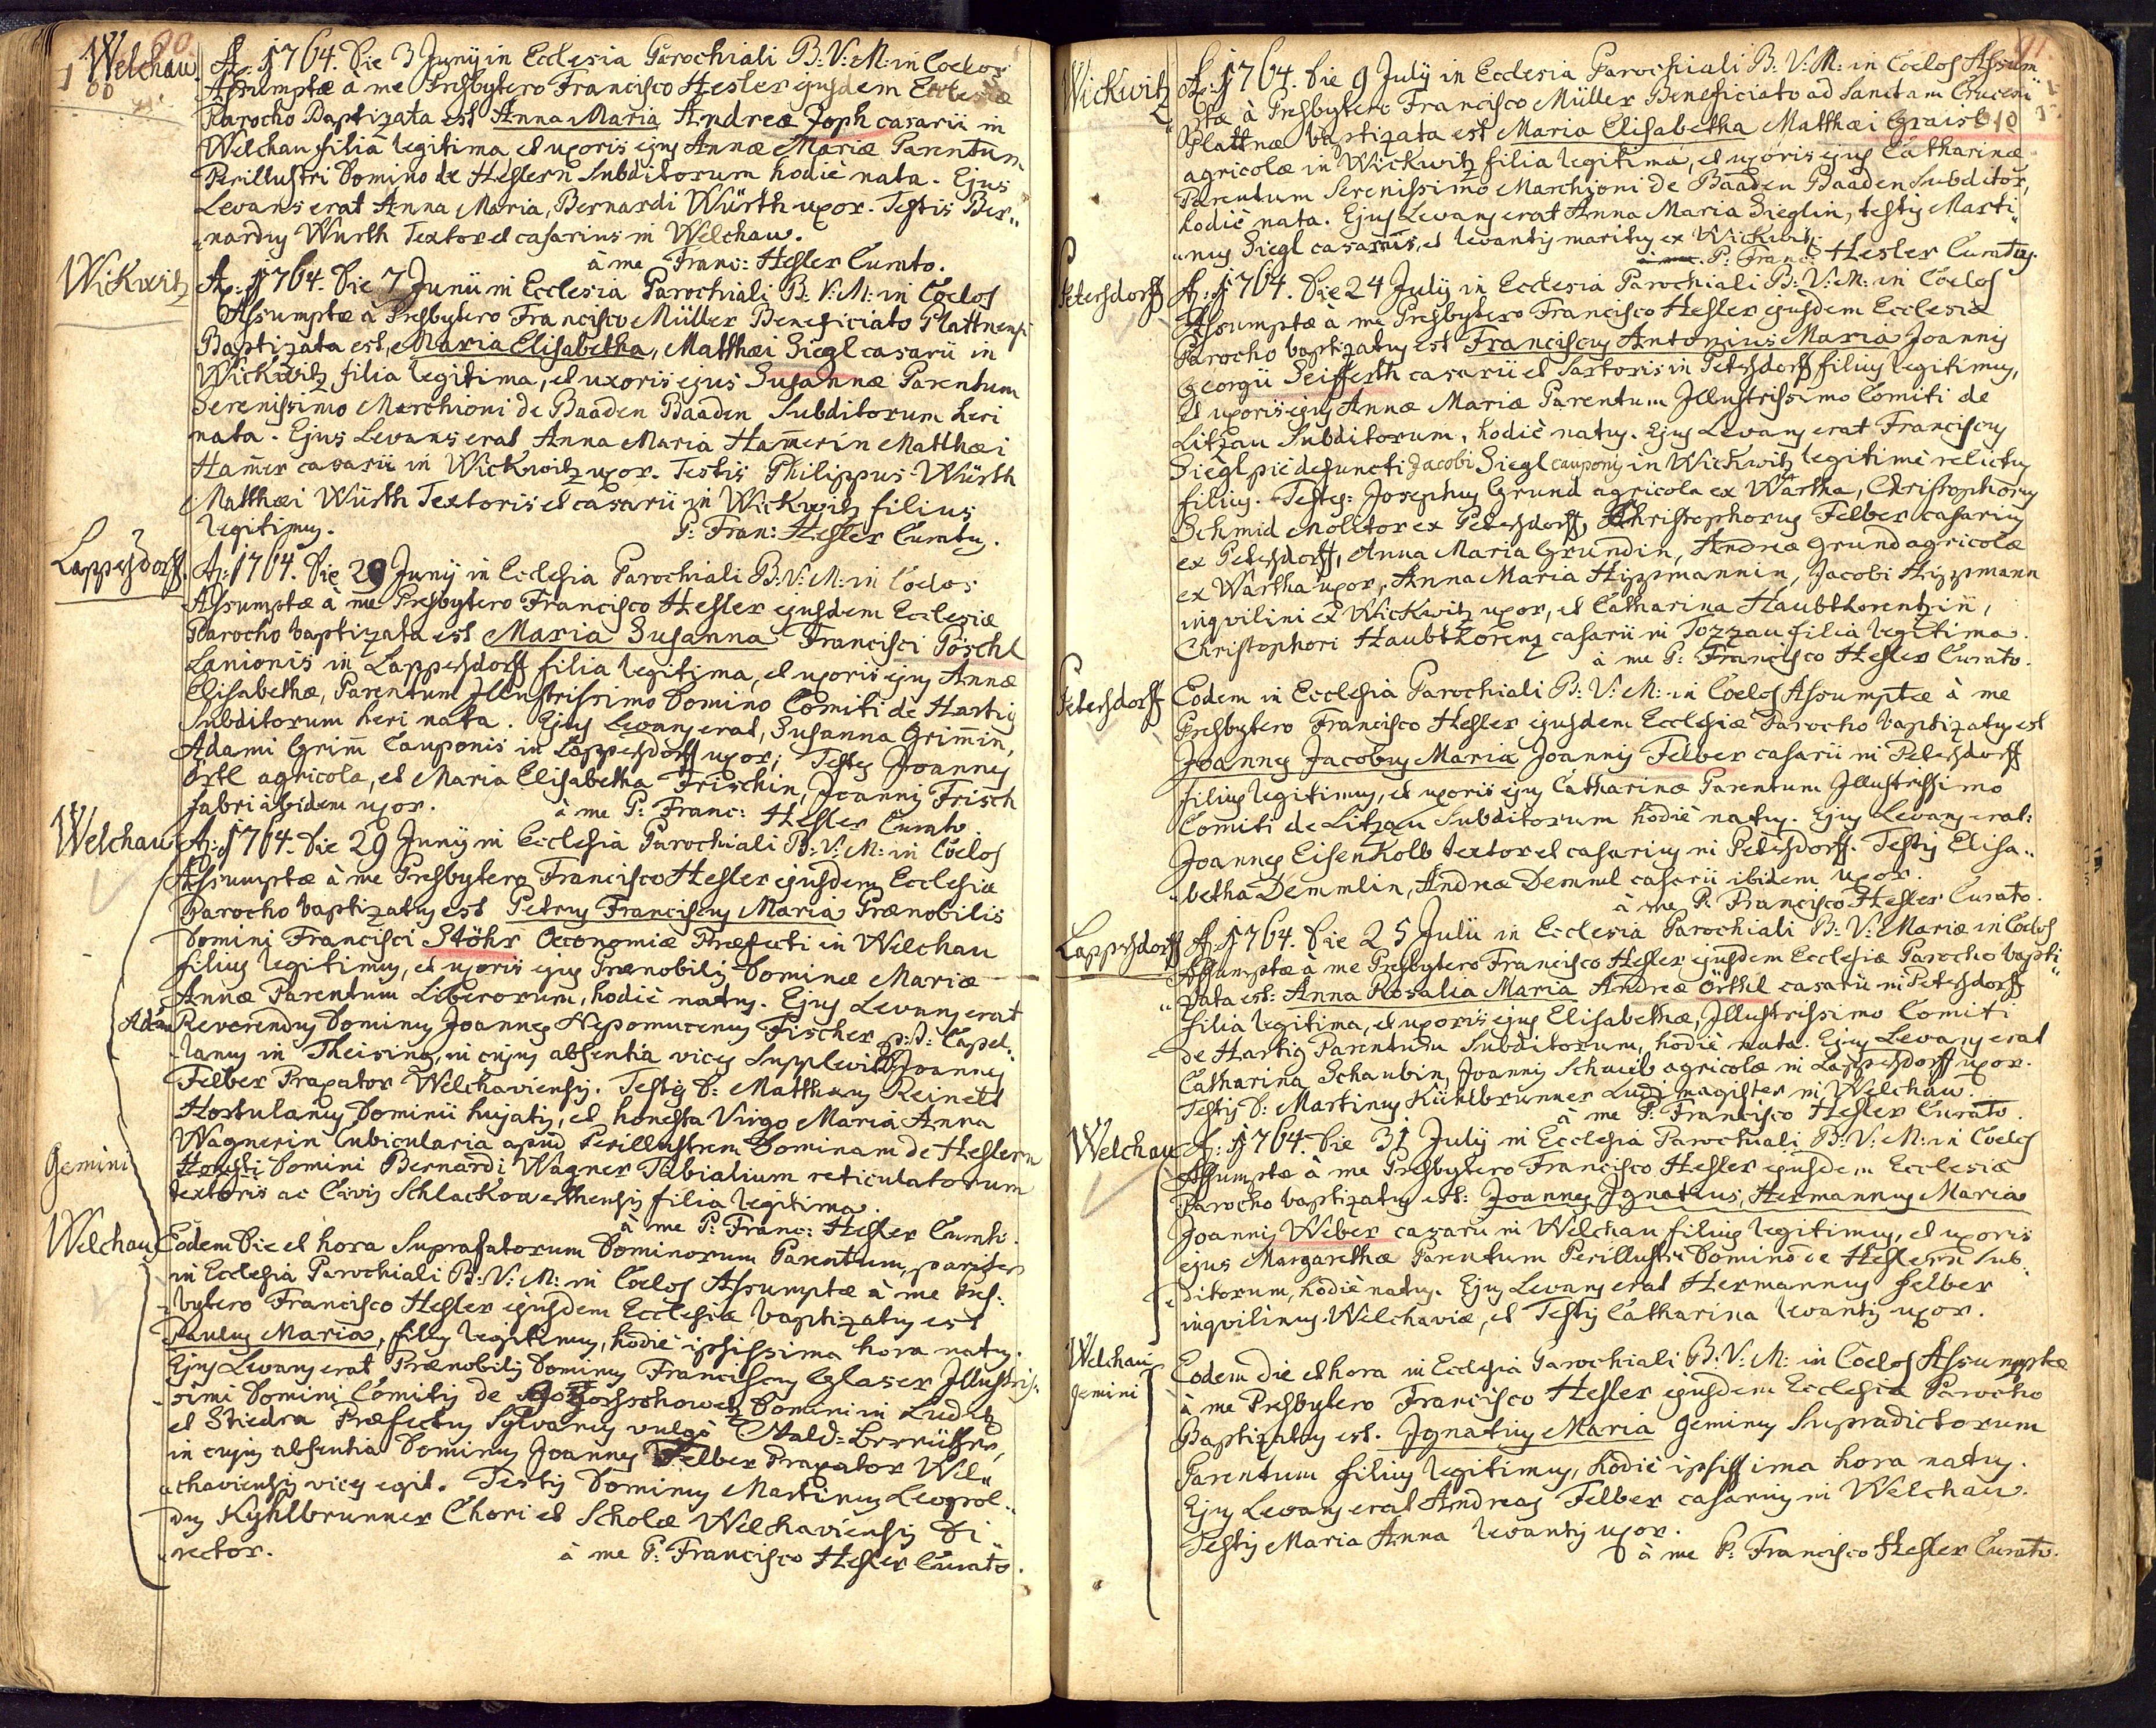 90.
Welchau.
A: 1764. Die 3 Junij in Ecclesia Parochiali B: V: M: in Coelos
Assumptæ à me Presbytero Francisco Hesler ejusdem Ecclesiæ
Parocho Baptizata est Anna Maria Andreæ Zoph casarii in
Welchau filia legitima, et uxoris ejus Annæ Mariæ Parentum
Perillustri Domino de Heslern Subditorum hodiè nata. Ejus
Levans erat Anna Maria, Bernardi Würth uxor. Testis Ber„
„nardus Würth Textor et casarius in Welchau.
à me Franc: Hesler Curato.
Wickwitz
A: 1764. Die 7 Junii in Ecclesia Parochiali B: V: M: in Coelos
Assumptæ à Presbytero Francisco Müller Beneficiato Plattnensi
Baptizata est, Maria Elisabetha, Matthæi Siegl casarii in
Wickwitz filia legitima, et uxoris ejus Susannæ Parentum
Serenissimo Marchioni de Baaden Baaden Subditorum heri
nata. Ejus Levans erat Anna Maria Hamerin Matthæi
Hamer casarii in Wickwitz uxor. Testis Philippus Würth
Matthæi Würth Textoris et casarii in Wickwitz filius
legitimus. P: Fran: Hesler Curatus.
Lappersdorff.
A: 1764. Die 29 Junij in Ecclesia Parochiali B: V: M: in Coelos
Assumptæ à me Presbytero Francisco Hesler ejusdem Ecclesiæ
Parocho baptizata est Maria Susanna Francisci Pöschl
Lanionis in Lappersdorff filia legitima, et uxoris ejus Annæ
Elisabethæ, Parentum Illustrissimo Domino Comiti de Hartig
Subditorum heri nata. Ejus Levans erat, Susanna Grimin,
Adami Grim Cauponis in Lappersdorff uxor; Testes Joannes
Örtl agricola, et Maria Elisabetha Frischin, Joannis Frisch
fabri ibidem uxor. à me P: Franc: Hesler Curato
Welchau
A: 1764. Die 29 Junij in Ecclesia Parochiali B: V: M: in Coelos
Assumptæ à me Presbytero Francisco Hesler ejusdem Ecclesiæ
Parocho baptizatus est Petrus Franciscus Maria Prænobilis
Domini Francisci Stöhr Oeconomiæ Præfecti in Welchau
filius legitimus, et uxoris ejus Prænobilis Dominæ Mariæ
Annæ Parentum Liberorum, hodiè natus. Ejus Levans erat
Reverendus Dominus Joannes Nepomucenus Fischer p: t: Capel„
„lanus in Theising, in cujus absentia vices supplevit Joannes
Felber Praxator Welchaviensis. Testes D: Matthæus Reinelt
Hortulanus Dominii hujatis, et honesta Virgo Maria Anna
Wagnerin Cubicularia apud Perillustrem Dominam de Heslern
Honesti Domini Bernardi Wagner Tibialium reticulatorum
textoris ac Civis Schlackowerthensis filia legitima.
à me P: Franc: Hesler Curato.
Gemini
Welchau
Eodem Die et hora Suprafatorum Dominorum Parentum, pariter
in Ecclesia Parochiali B: V: M: in Coelos Assumptæ à me Pres:
„bytero Francisco Hesler ejusdem Ecclesiæ baptizatus est
Paulus Maria, filius legitimus, hodiè ipsissima hora natus.
Ejus Levans erat Prænobilis Dominus Franciscus Glaser Illustris„
„simi Domini Comitis de Domini in Luditz
et Stiedra Præfectus Sylvarum vulgò Wald=
in cujus absentia Dominus Joannes Felber Praxator Wel„
„chaviensis vices egit. Testis Dominus Martinus Leopol„
„dus Kyhlbrunner Chori et Scholæ Welchaviensis Di„
„rector. à me P: Francisco Hesler Curato.
91.
Wickwitz
A: 1764. Die 9 Julij in Ecclesia Parochiali B: V: M: in Coelos Assum„
„ptæ à Presbytero Francisco Müller Beneficiato ad Sanctam Crucem
Plattnæ baptizata est Maria Elisabetha Matthæi Graisl
agricolæ in Wickwitz filia legitima, et uxoris ejus Catharinæ
Parentum Serenissimo Marchioni de Baaden Baaden Subditor,
hodiè nata. Ejus Levans erat Anna Maria Sieglin, testis Marti„
„nus Siegl casarius, et levantis maritus ex Wickwitz
P: Franc: Hesler Curatus.
Petersdorff
A: 1764. Die 24 Julij in Ecclesia Parochiali B: V: M: in Coelos
Assumptæ à me Presbytero Francisco Hesler ejusdem Ecclesiæ
Parocho baptizatus est Franciscus Antonius Maria Joannis
Georgii Seifferth casarii et Sartoris in Petersdorff filius legitimus,
et uxoris ejus Annæ Mariæ Parentum Illustrissimo Comiti de
Litzau Subditorum, hodiè natus. Ejus Levans erat Franciscus
Siegl piè defuncti Jacobi Siegl cauponis in Wickwitz legitimè relictus
filius. Testes: Josephus Grund agricola ex Wartha, Christophorus
Schmid Molitor ex Petersdorff, Christophorus Felber casarius
ex Petersdorff, Anna Maria Grundin, Andreæ Grund agricolæ
ex Wartha uxor, Anna Maria Hizzmannin, Jacobi Hizzmann
inqvilini ex Wickwitz uxor, et Catharina Haubtlorentzin,
Christophori Haubtlorenz casarii in Tozzau filia legitima.
à me P: Francisco Hesler Curato.
Petersdorff
Eodem in Ecclesia Parochiali B: V: M: in Coelos Assumptæ à me
Presbytero Francisco Hesler ejusdem Ecclesiæ Parocho baptizatus est
Joannes Jacobus Maria Joannis Felber casarii in Petersdorff
filius legitimus, et uxoris ejus Catharinæ Parentum Illustrissimo
Comiti de Litzau Subditorum hodiè natus. Ejus Levans erat:
Joannes Eisenkolb textor et casarius in Petersdorff. Testis Elisa„
„betha Demmlin, Andreæ Demml casarii ibidem uxor.
à me P: Francisco Hesler Curato.
Lappersdorff
A: 1764. Die 25 Julii in Ecclesia Parochiali B: V: Mariæ in Coelos
Assumptæ à me Presbytero Francisco Hesler ejusdem Ecclesiæ Parocho bapti„
„zata est: Anna Rosalia Maria Andreæ Örthl casarii in Petersdorff
filia legitima, et uxoris ejus Elisabethæ, Illustrissimo Comiti
de Hartig Parentum Subditorum, hodiè nata. Ejus Levans erat
Catharina Schaubin, Joannis Schaub agricolæ in Lappersdorff uxor.
Testis D: Martinus Kühlbrunner Ludi magister in Welchau.
à me P: Francisco Hesler Curato.
Welchau
A: 1764. Die 31 Julij in Ecclesia Parochiali B: V: M: in Coelos
Assumptæ à me Presbytero Francisco Hesler ejusdem Ecclesiæ
Parocho baptizatus est: Joannes Ignatius, Hermannus Maria
Joannis Weber casarii in Welchau filius legitimus, et uxoris
ejus Margarethæ Parentum Perillustri Domino de Heslern Sub„
„ditorum, hodiè natus. Ejus Levans erat Hermannus Felber
inqvilinus Welchaviæ, et Testis Catharina levantis uxor.
Welchau
gemini
Eodem die et hora in Ecclesia Parochiali B: V: M: in Coelos Assumptæ
à me Presbytero Francisco Hesler ejusdem Ecclesiæ Parocho
Baptizatus est. Ignatius Maria geminus Supradictorum
Parentum filius legitimus, hodiè ipsissima hora natus.
Ejus Levans erat Andreas Felber casarius in Welchau.
Testis Maria Anna levantis uxor.
à me P: Francisco Hesler Curato.